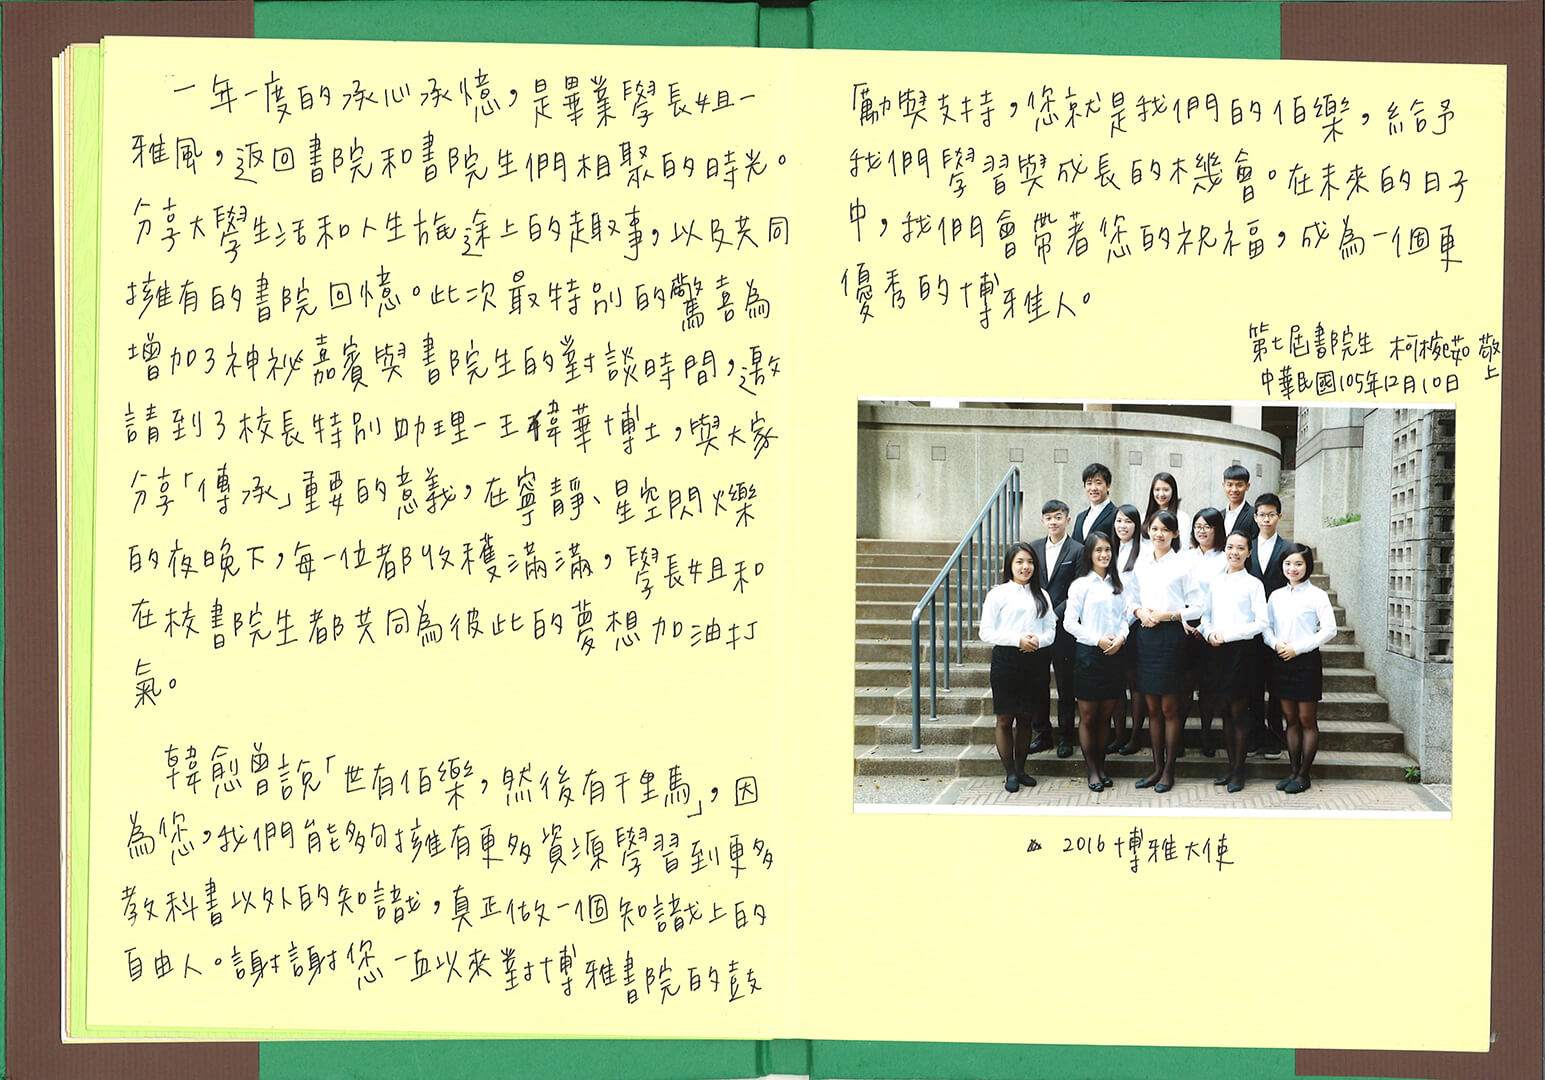 一年一度的承心承憶，是畢業學長姐一
雅風，返回書院和書院生們相聚的時光。
分享大學生活和人生旅途上的趣事，以及共同
擁有的書院回憶。此次最特別的驚喜為
增加了神祕嘉賓與書院生的對談時間，邀
請到了校長特別助理－王偉華博士，與大家
分享「傳承」重要的意義，在寧靜、星空閃爍
的夜晚下，每一位都收穫滿滿，學長姐和
在校書院生都共同為彼此的夢想加油打
氣。
韓愈曾說「世有伯樂，然後有千里馬」，因
為您，我們能夠擁有更多資源學習到更多
教科書以外的知識，真正做一個知識上的
自由人。謝謝您一直以來對博雅書院的鼓
勵與支持，您就是我們的伯樂，給予
我們學習與成長的機會。在未來的日子
中，我們會帶著您的祝福，成為一個更
優秀的博雅人。
第七屆書院生 柯 敬上
中華民國105年12月10日
2016博雅大使